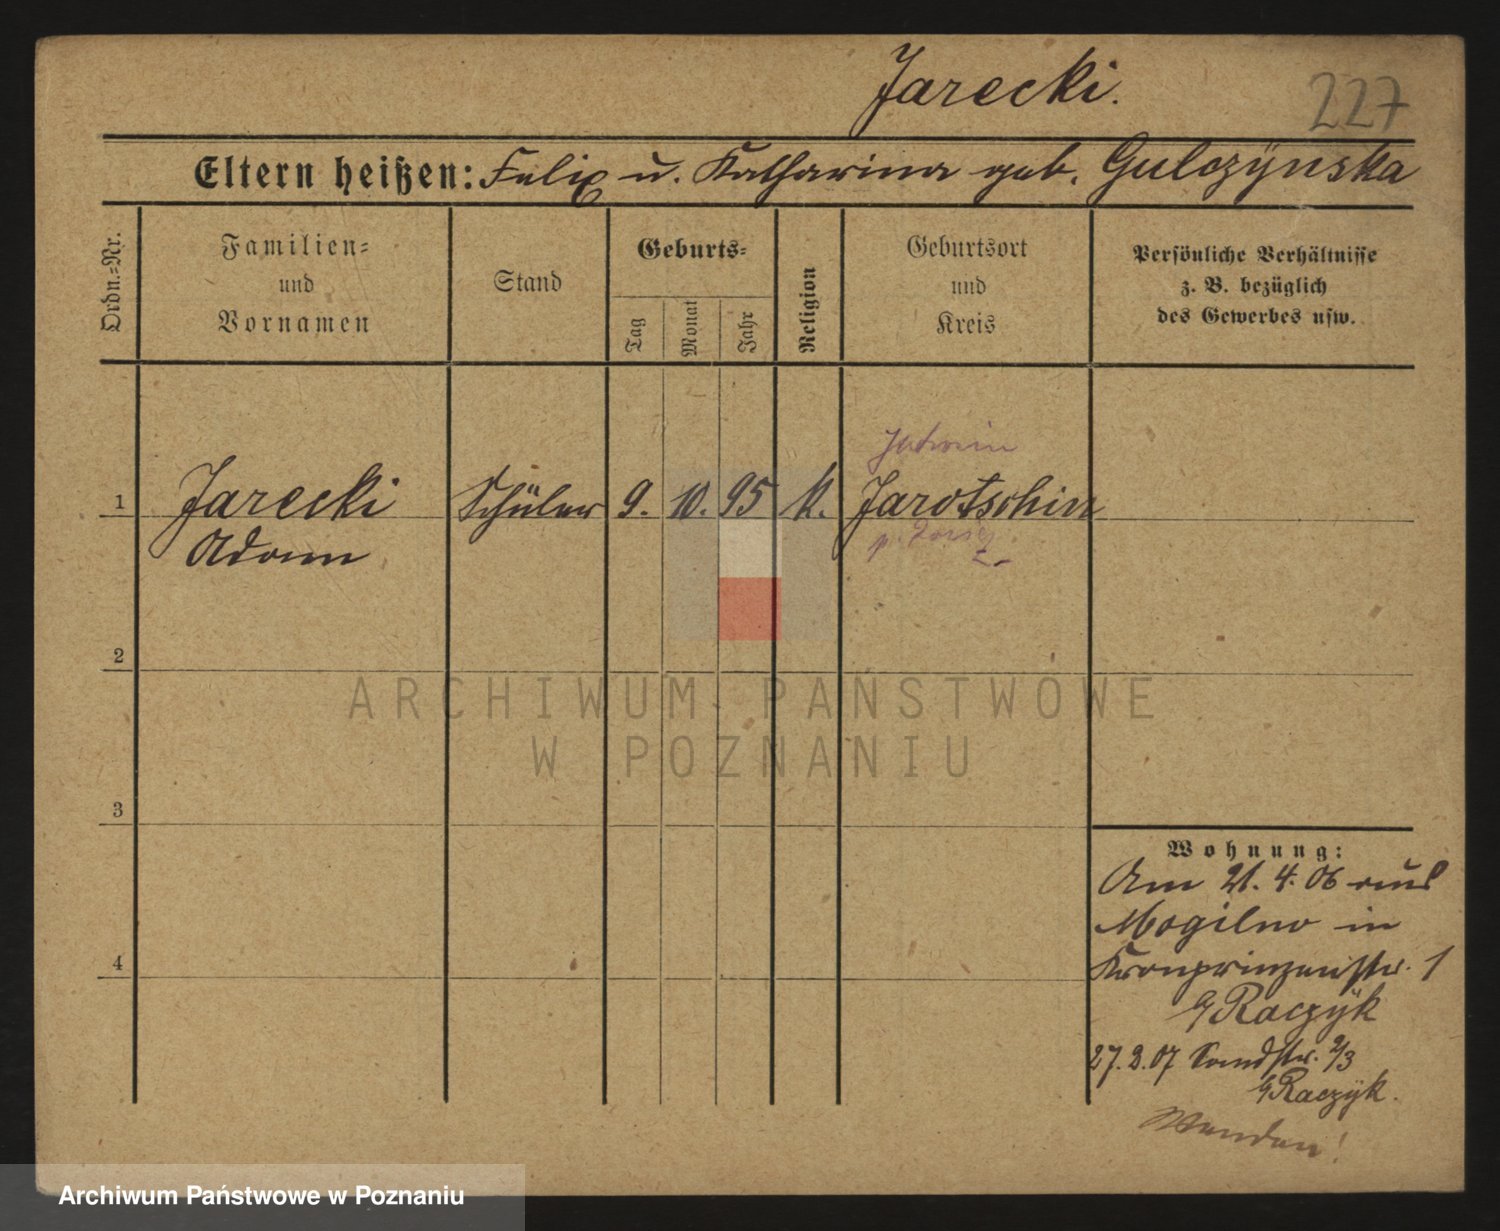 Jarecki.
227
Eltern heißen: Felix u. Katharina geb. Gulczÿnska
Ordn.=Nr.
Familien=
und
Vornamen
Stand
Geburts=
Tag
Monat
Jahr
Religion
Geburtsort
und
Kreis
Persönliche Verhältnisse
z. B. bezüglich
des Gewerbes usw.
1 Jarecki Schüler 9. 10. 95 k. Jarotschin
Adam
2
3
4
ARCHIWUM PAŃSTWOWE
W POZNANIU
Wohnung:
Am 21. 4. 06 aus
Mogilno in
Kronprinzenstr. 1
Raczÿk
27. 2. 07 Sandstr. 2/3
Raczÿk.
Wenden!
Archiwum Państwowe w Poznaniu